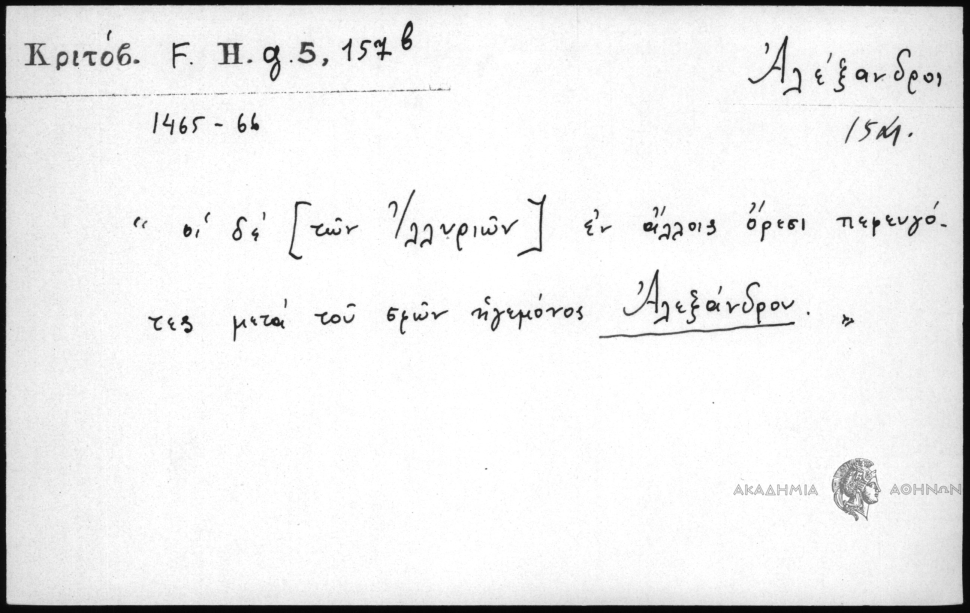 Κριτόβ. F. H. g. 5, 157 b
Ἀλέξανδρος
1465 - 66
“ οἱ δέ [τῶν Ἰλλυριῶν] ἐν ἄλλοις ὄρεσι πεφευγό-
τες μετά τοῦ σφῶν ἡγεμόνος Ἀλεξάνδρου. „
ΑΚΑΔΗΜΙΑ ΑΘΗΝΩΝ